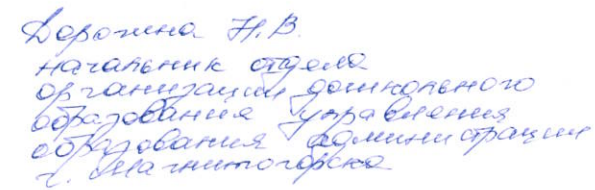 Дорожина Н.В.
начальник отдела
организации дошкольного
образования управления
образования администрации
г. Магнитогорска